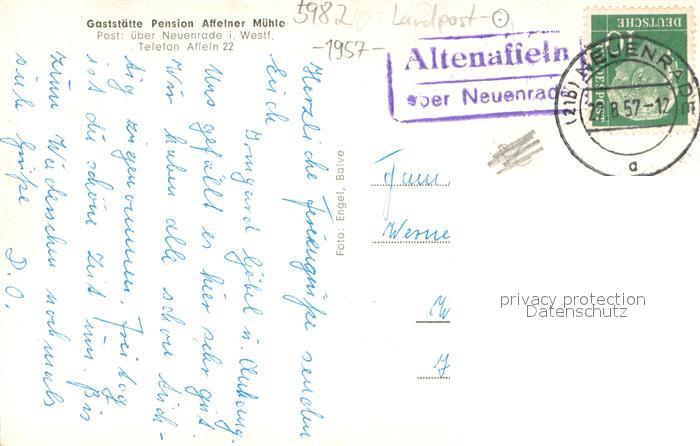 Gaststätte Pension Affelner Mühle
Post: über Neuenrade i. Westf.
Telefon Affeln 22
5982
Landpost-
-1957-
Altenaffeln
über Neuenrade
DEUTSCHE
(21b) NEUENRADE
22.8.57-17
a
Herzliche Feriengrüße senden
Euch Irmgard Göbel u. Anhang.
Uns gefällt es hier sehr gut.
Wir haben alle schon tüch-
tig zugenommen. Freitag
ist die schöne Zeit um. Bis
zum Wiedersehen nochmals
viele Grüße D. O.
Foto: Engel, Balve
Fam.
Werne
W
privacy protection
Datenschutz